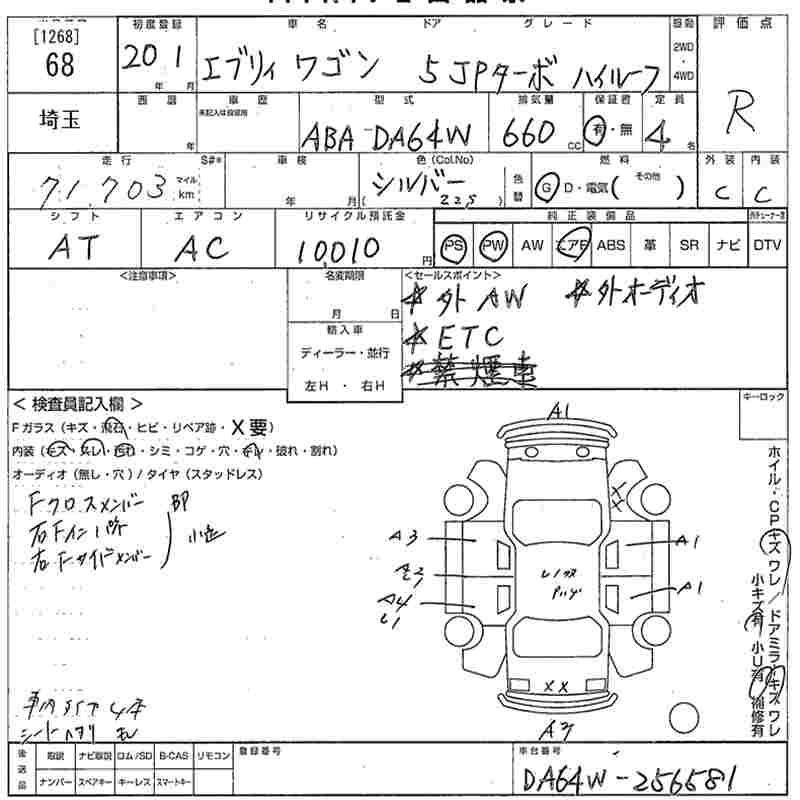 [1268]
68
初度登録 車名 ドア グレード 駆動
20 1 年 月 エブリィ ワゴン 5 JPターボ ハイルーフ 2WD・4WD
評価点
R
埼玉
西暦 年 車歴 未記入は自家用 型式 排気量 保証書 定員
ABA-DA64W 660 CC 有・無 4 名
走行 S#* 車検 色(Col.No) 色替 燃料 外装 内装
71,703 マイル km 年 月 シルバー ( Z2S ) G D・電気( その他 ) C C
シフト エアコン リサイクル預託金 純正装備品
AT AC 10,010 円 PS PW AW エアB ABS 革 SR ナビ DTV
<注意事項> 名変期限 <セールスポイント>
月 日
☆外AW ☆外オーディオ
輸入車 ☆ETC
ディーラー・並行 ☆禁煙車
左H・右H
キーロック
<検査員記入欄>
Fガラス(キズ・飛石・ヒビ・リペア跡・X要)
内装(キズ・スレ・汚れ・シミ・コゲ・穴・ネジ穴・破れ・割れ)
オーディオ(無し・穴)/タイヤ(スタッドレス)
Fクロスメンバー
右Fインパネ
右Fサイドメンバー
小辺
A1
XX
A3 A1
A4 A1
XX
A2
ホイル・CPキズ ワレ/ドアミラーキズ ワレ
小キズ有 小U有 補修有
車内タイヤ4本
後送品 取説 ナビ取説 ロム/SD B-CAS リモコン 登録番号 車台番号
ナンバー スペアキー キーレス スマートキー DA64W-256581